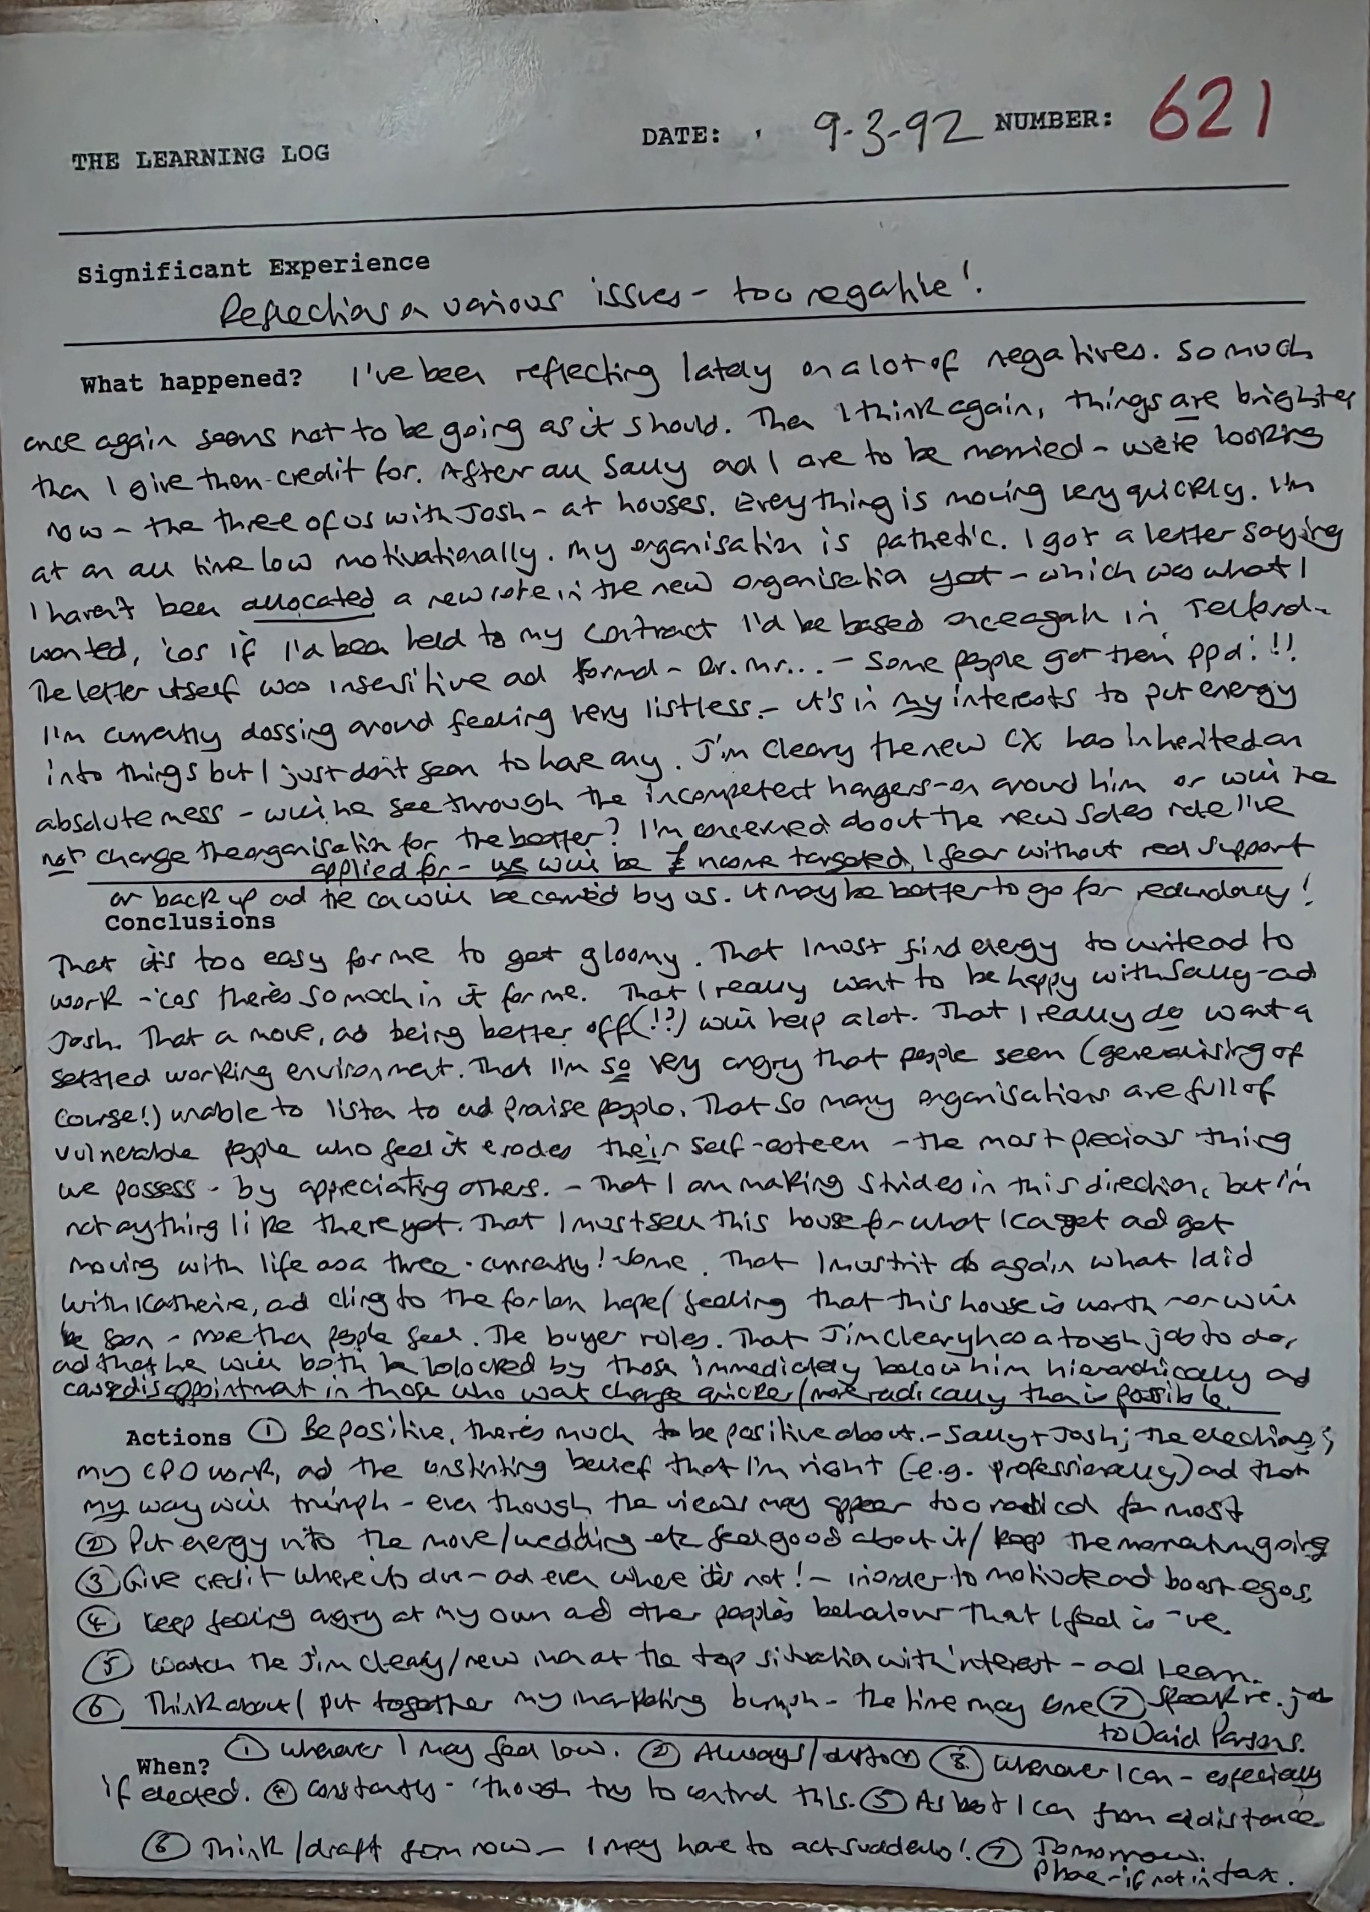 THE LEARNING LOG DATE: 9-3-92 NUMBER: 621
Significant Experience
Reflections on various issues - too negative!
What happened? I've been reflecting lately on a lot of negatives. So much
once again seems not to be going as it should. Then I think again, things are brighter
than I give them credit for. After all Sally and I are to be married - we're looking
now - the three of us with Josh - at houses. Everything is moving very quickly. I'm
at an all time low motivationally. My organisation is pathetic. I got a letter saying
I haven't been allocated a new role in the new organisation yet - which was what I
wanted, 'cos if I'd been held to my contract I'd be based once again in Telford -
The letter itself was insensitive and formal - Dr. Mr... - Some people got them ppd! !!
I'm currently dossing around feeling very listless - it's in my interests to put energy
into things but I just don't seem to have any. Jim Cleary the new CX has inherited an
absolute mess - will he see through the incompetent hangers-on around him or will he
not change the organisation for the better? I'm concerned about the new sales role I've
applied for - us will be £ income targeted, I fear without real support
or back up and the can will be carried by us. It may be better to go for redundancy!
Conclusions
That it's too easy for me to get gloomy. That I must find energy to write and to
work - 'cos there's so much in it for me. That I really want to be happy with Sally - and
Josh. That a move, and being better off (!?) will help a lot. That I really do want a
settled working environment. That I'm so very angry that people seem (generalising of
course!) unable to listen to and praise people. That so many organisations are full of
vulnerable people who feel it erodes their self-esteem - the most precious thing
we possess - by appreciating others. - That I am making strides in this direction, but I'm
not anything like there yet. That I must sell this house for what I can get and get
moving with life as a three - currently! - some. That I mustn't do again what I did
with Katherine, and cling to the forlorn hope/feeling that this house is worth - or will
be soon - more than people feel. The buyer rules. That Jim Cleary has a tough job to do,
and that he will both be blocked by those immediately below him hierarchically and
cause disappointment in those who want change quicker/more radically than is possible.
Actions ① Be positive, there's much to be positive about. - Sally + Josh; the elections;
my CPD work, and the unstinting belief that I'm right (e.g. professionally) and that
my way will triumph - even though the views may appear too radical for most
② Put energy into the move/wedding etc feel good about it/ keep the momentum going
③ Give credit where it's due - and even where it's not! - in order to motivate and boost egos.
④ Keep feeling angry at my own and other people's behaviour that I feel is -ve.
⑤ Watch the Jim Cleary/new man at the top situation with interest - and learn.
⑥ Think about/ put together my marketing bumph - the time may come ⑦ Speak re. job
to David Parsons.
When? ① Whenever I may feel low. ② Always/ ③ Whenever I can - especially
if elected. ④ Constantly - 'though try to control this. ⑤ As best I can from a distance
⑥ Think/draft from now - I may have to act suddenly! ⑦ Tomorrow.
Phone - if not in fax.